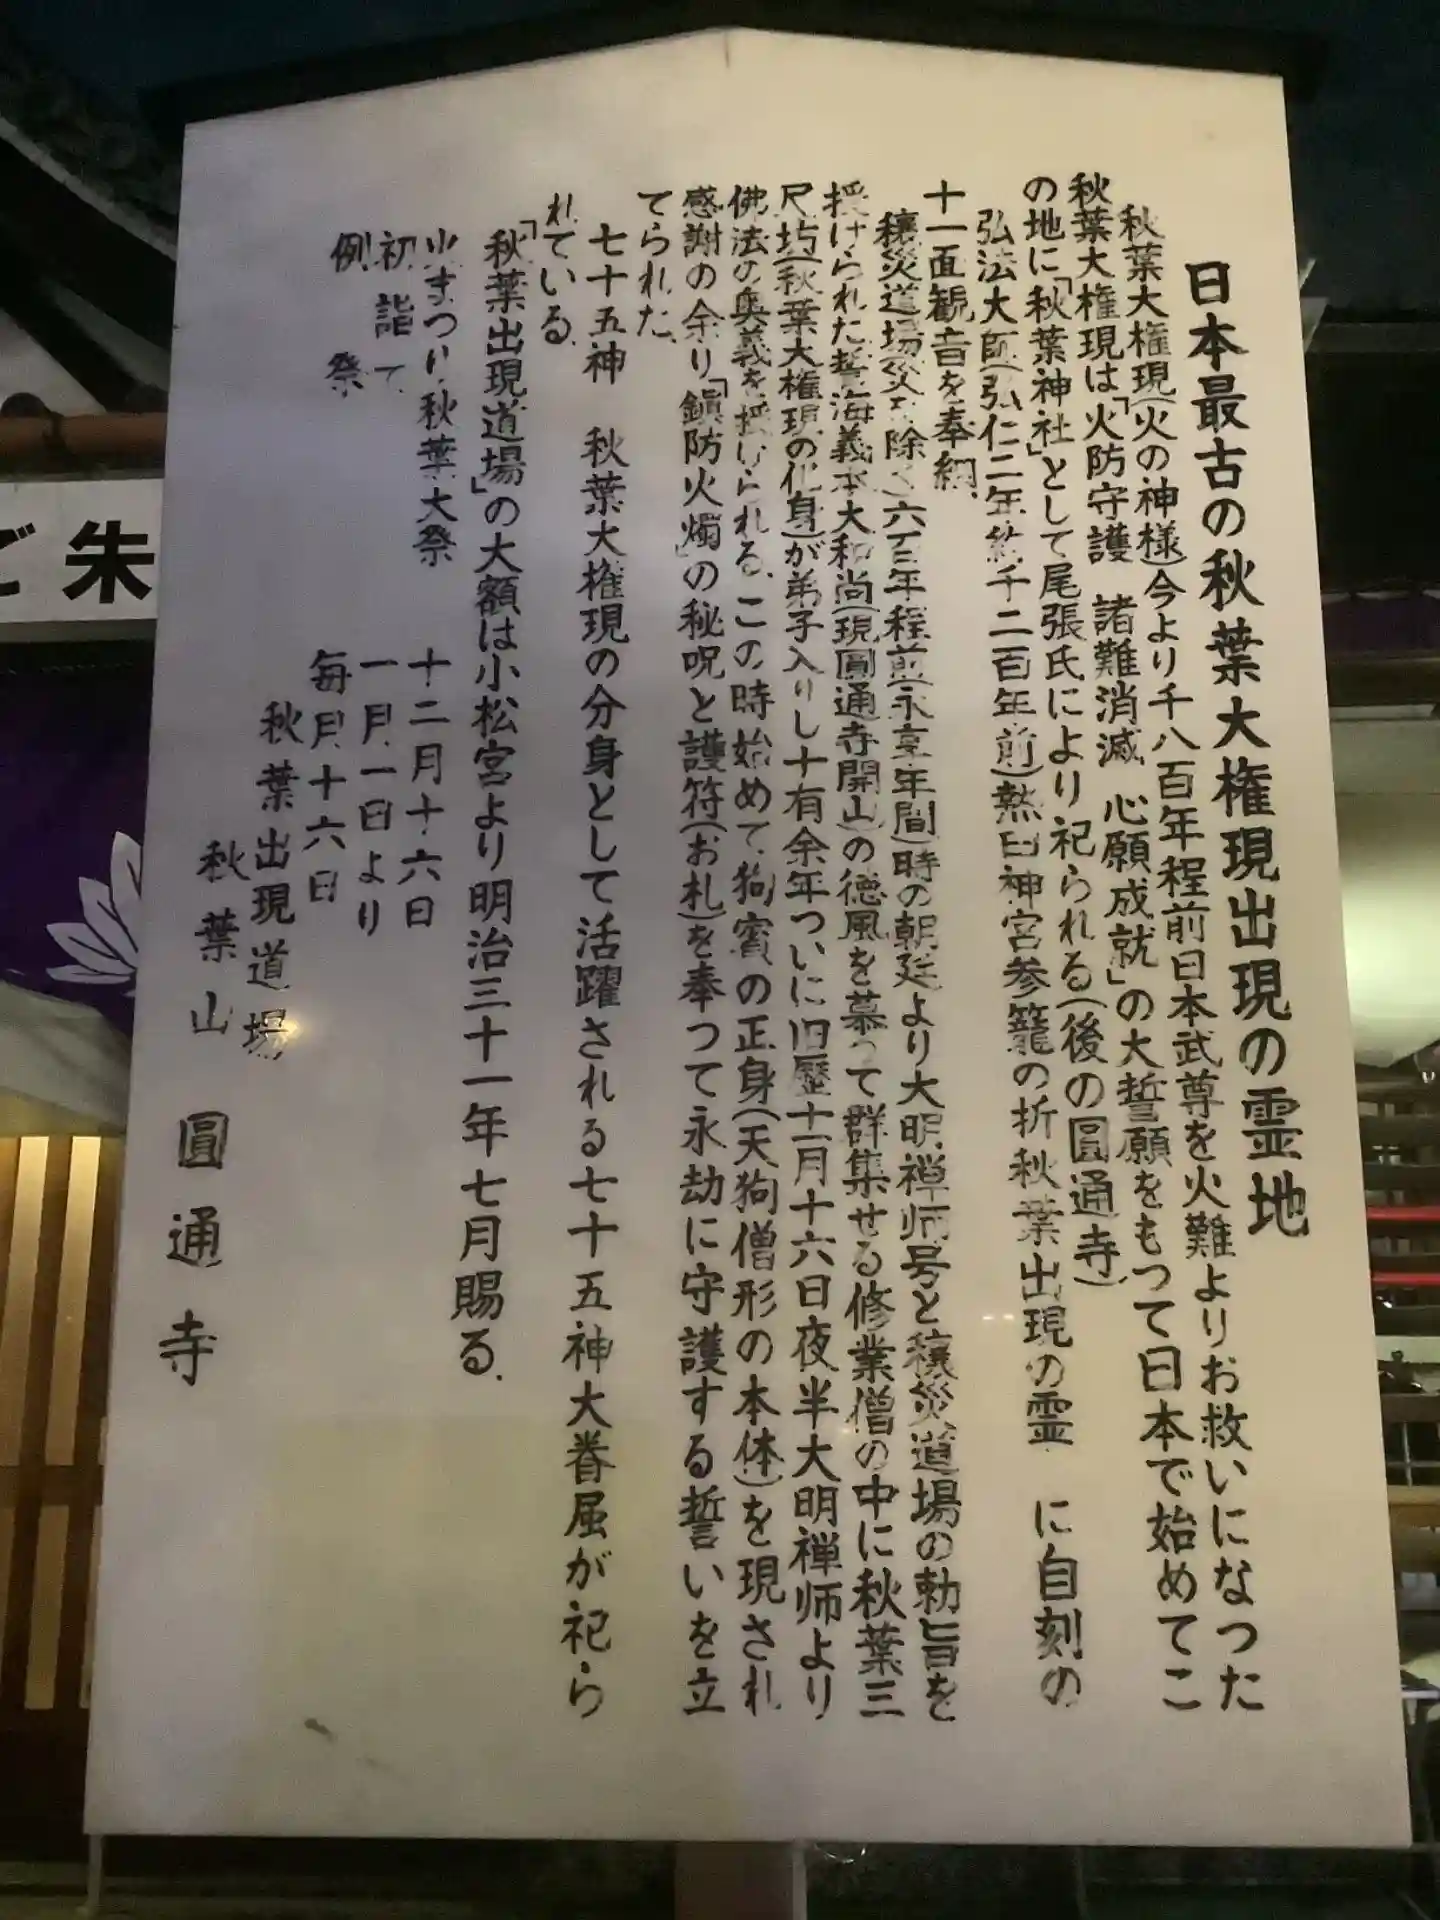 日本最古の秋葉大権現出現の霊地
秋葉大権現(火の神様)今より千八百年程前日本武尊を火難よりお救いになつた
秋葉大権現は「火防守護 諸難消滅 心願成就」の大誓願をもつて日本で始めてこ
の地に「秋葉神社」として尾張氏により祀られる(後の圓通寺)
弘法大師(弘仁二年約千二百年前)熱田神宮参籠の折秋葉出現の霊 に自刻の
十一面観音を奉納
穰災道場(災を除く)六百年程前(永享年間)時の朝廷より大明禅师号と穰災道場の勅旨を
授けられた誓海義本大和尚(現圓通寺開山)の徳風を慕つて群集せる修業僧の中に秋葉三
尺坊(秋葉大権現の化身)が弟子入りし十有余年ついに旧歴十一月十六日夜半大明禅师より
佛法の奥義を授けられる、この時始めて狗賓の正身(天狗僧形の本体)を現され
感謝の余り「鎭防火燭」の秘呪と護符(お札)を奉つて永劫に守護する誓いを立
てられた、
七十五神 秋葉大権現の分身として活躍される七十五神大眷属が祀ら
れている、
「秋葉出現道場」の大額は小松宮より明治三十一年七月賜る、
火まつり秋葉大祭 十二月十六日
初詣て 一月一日より
例祭 毎月十六日
秋葉出現道場
秋葉山 圓通寺
ご朱